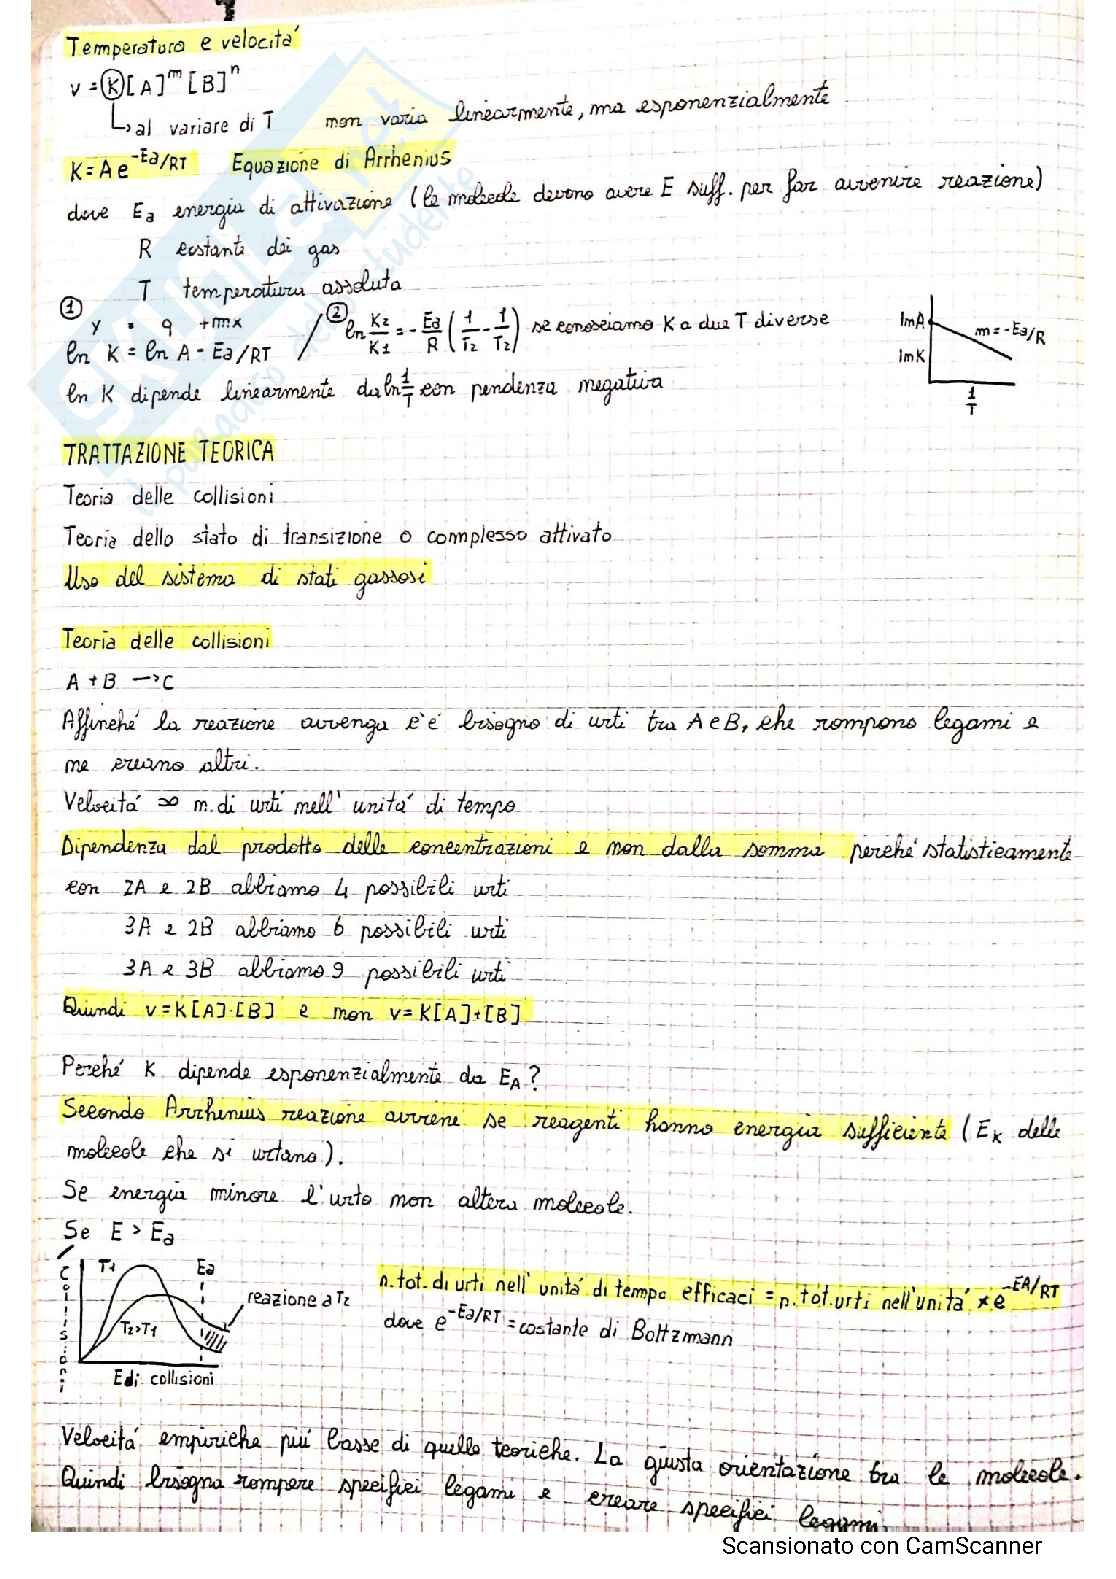 Temperatura e velocità
v = K [A]^m [B]^n
↳ al variare di T non varia linearmente, ma esponenzialmente
K = A e^-Ea/RT Equazione di Arrhenius
dove Ea energia di attivazione (le molecole devono avere E suff. per far avvenire reazione)
R costante dei gas
T temperatura assoluta
① y = q + mx
ln K = ln A - Ea/RT / ② ln K2/K1 = - Ea/R (1/T2 - 1/T2) se conosciamo K a due T diverse
ln K dipende linearmente da ln 1/T con pendenza negativa
lmA
m = -Ea/R
lmK
1/T
TRATTAZIONE TEORICA
Teoria delle collisioni
Teoria dello stato di transizione o complesso attivato
Uso del sistema di stati gassosi
Teoria delle collisioni
A + B → C
Affinché la reazione avvenga c'è bisogno di urti tra A e B, che rompono legami e
ne creano altri.
Velocità ∞ n. di urti nell' unità di tempo
Dipendenza dal prodotto delle concentrazioni e non dalla somma perché statisticamente
con 2A e 2B abbiamo 4 possibili urti
3A e 2B abbiamo 6 possibili urti
3A e 3B abbiamo 9 possibili urti
Quindi v = K[A]·[B] e non v = K[A]+[B]
Perché K dipende esponenzialmente da EA?
Secondo Arrhenius reazione avviene se reagenti hanno energia sufficiente (EK delle
molecole che si urtano).
Se energia minore l'urto non altera molecole.
Se E > Ea
Collisioni
T1
Ea
reazione a T2
T2>T1
E di collisioni
n. tot. di urti nell' unità di tempo efficaci = n. tot. urti nell'unità × e^-EA/RT
dove e^-Ea/RT = costante di Boltzmann
Velocità empiriche più basse di quelle teoriche. La giusta orientazione tra le molecole.
Quindi bisogna rompere specifici legami e creare specifici legami.
Scansionato con CamScanner